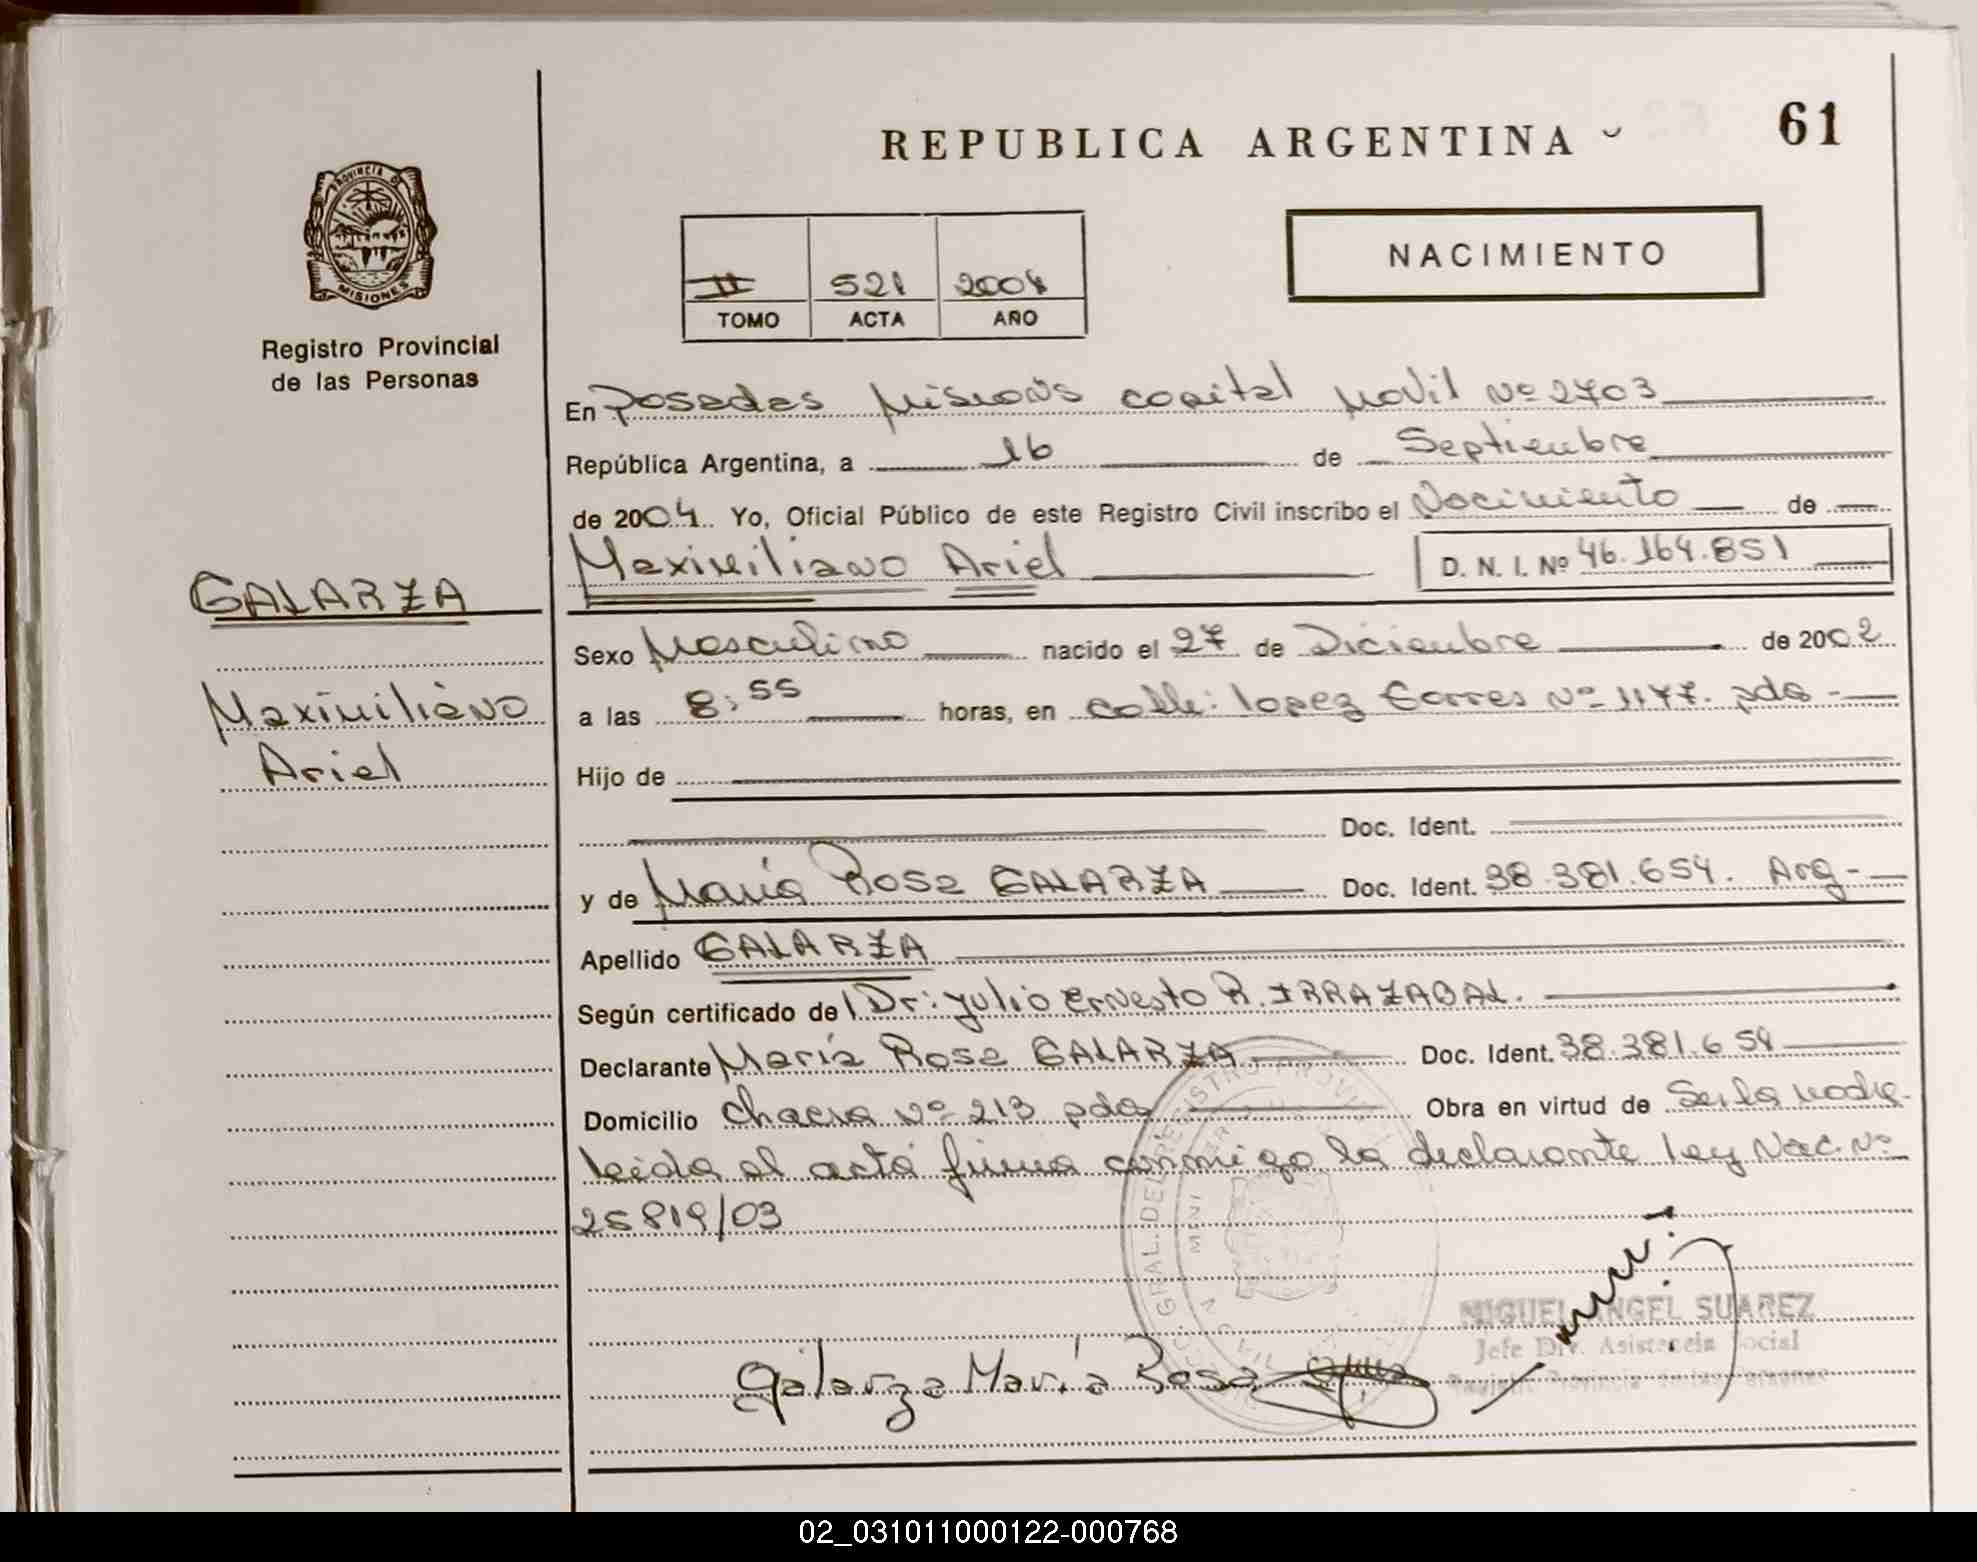 REPUBLICA ARGENTINA
61
PROVINCIA D
MISIONES
Registro Provincial
de las Personas
NACIMIENTO
II 521 2004
TOMO ACTA AÑO
En Posadas Misiones capital Movil Nº 2703
República Argentina, a 16 de Septiembre
de 2004. Yo, Oficial Público de este Registro Civil inscribo el Nacimiento de
Maximiliano Ariel D. N. I. Nº 46.164.851
GALARZA
Maximiliano
Ariel
Sexo Masculino nacido el 27 de Diciembre de 2002
a las 8:55 horas, en calle: lopez torres Nº 1177. pdas -
Hijo de
Doc. Ident.
y de María Rosa GALARZA Doc. Ident. 38.381.654. Arg-
Apellido GALARZA
Según certificado de Dr: Julio Ernesto R. IRRAZABAL.
Declarante María Rosa GALARZA Doc. Ident. 38.381.654
Domicilio Chacra Nº 213 pdas Obra en virtud de Ser la madre.
leida el acta firma conmigo la declarante ley Nac. Nº
25819/03
MIGUEL ANGEL SUAREZ
Jefe Div. Asistencia Social
Galarza María Rosa
02_031011000122-000768